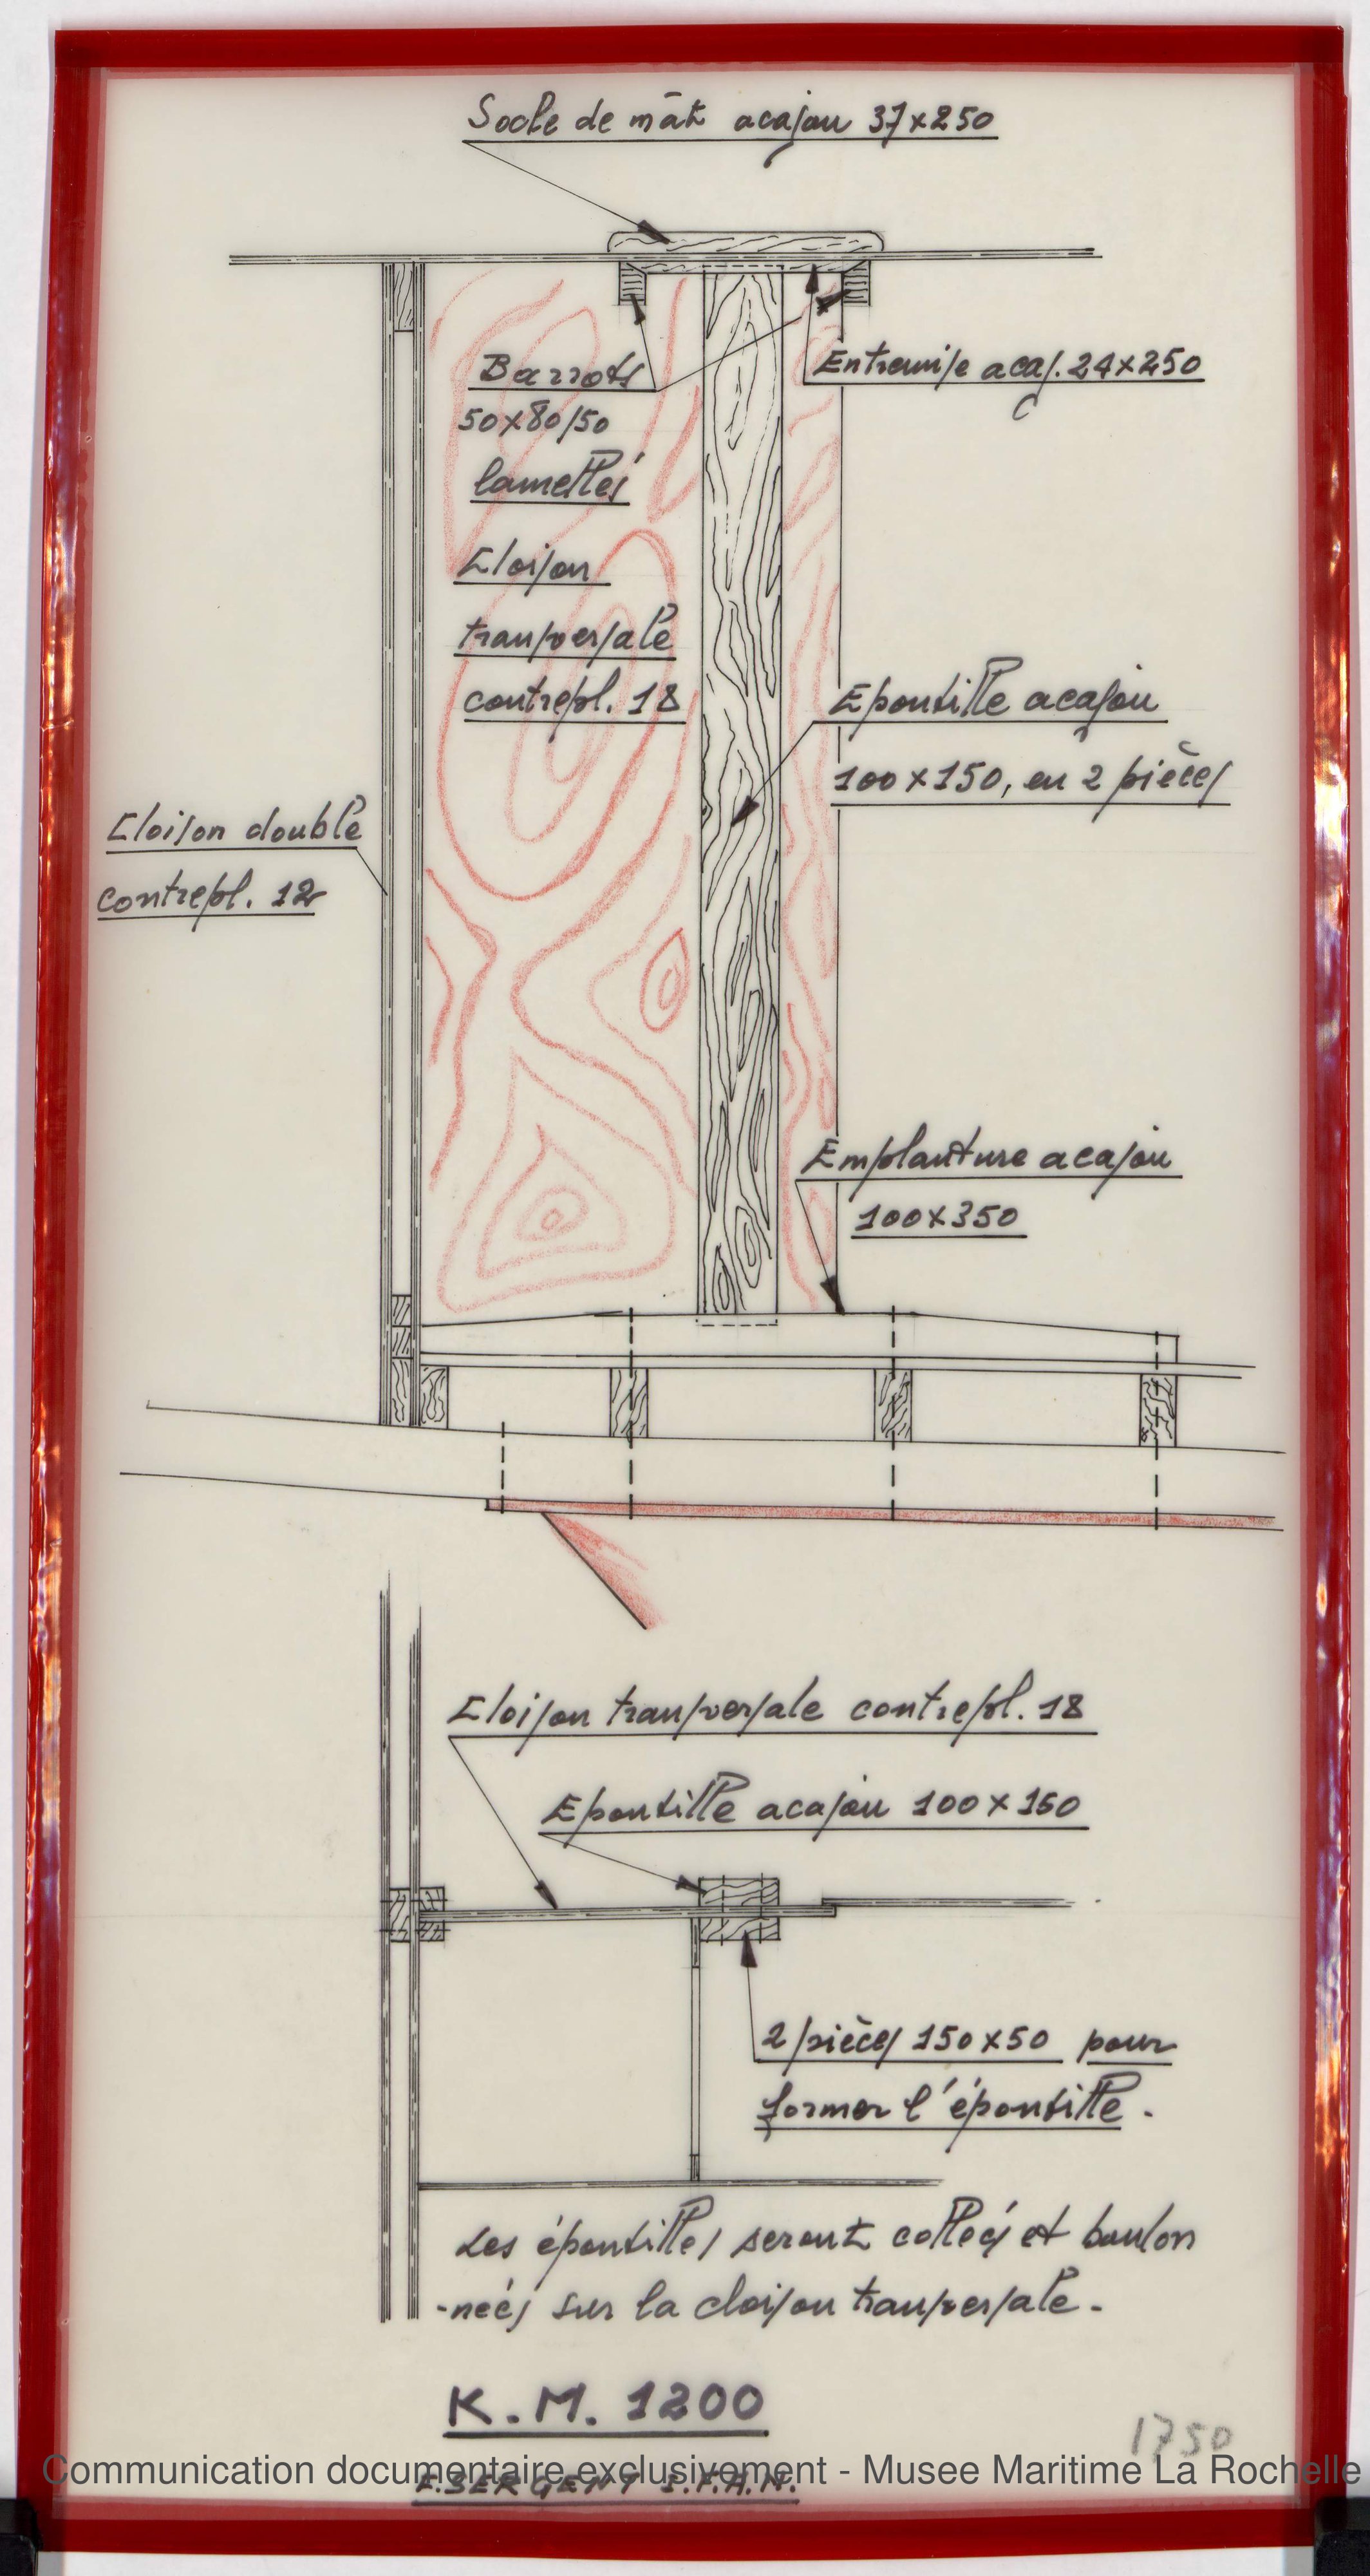 Socle de mât acajou 37x250
Barrots
50x80/50
lamellés
Entremise acaj. 24x250
Cloison
transversale
contrepl. 18
Epontille acajou
100x150, en 2 pièces
Cloison double
contrepl. 12
Emplanture acajou
100x350
Cloison transversale contrepl. 18
Epontille acajou 100x150
2 pièces 150x50 pour
former l'épontille.
Les épontilles seront collées et boulon
-nées sur la cloison transversale.
K.M. 1200
1750
Communication documentaire exclusivement - Musee Maritime La Rochelle
E.SERGENT S.F.A.N.